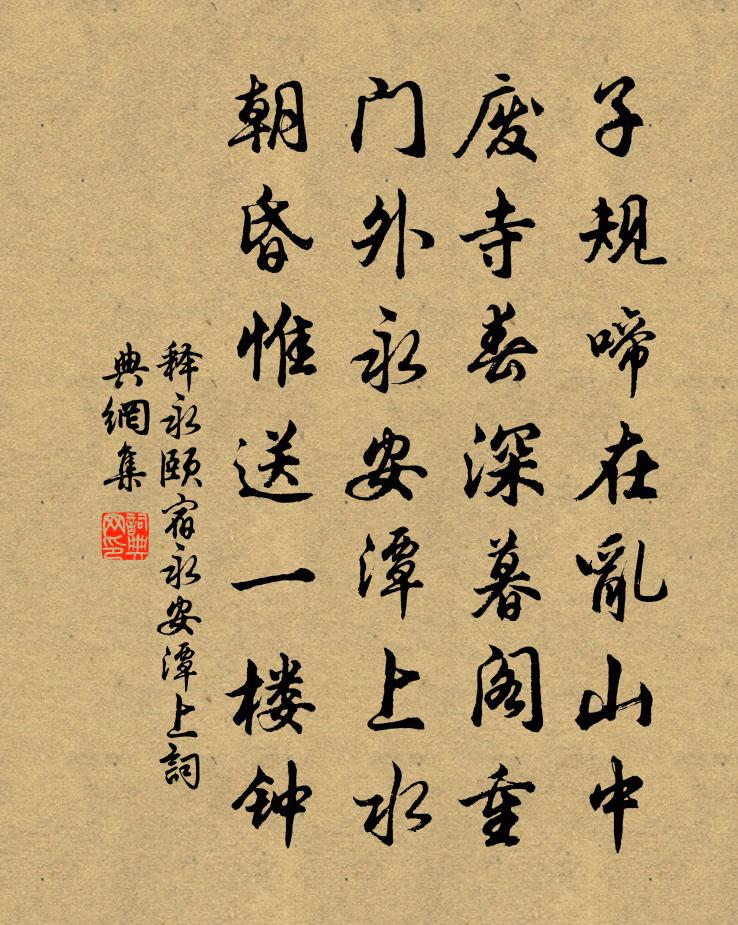 子规啼在亂山中
废寺春深暮阁重
门外永安潭上水
朝昏惟送一楼钟
释永颐宿永安潭上詞
典網集
詞典
网印